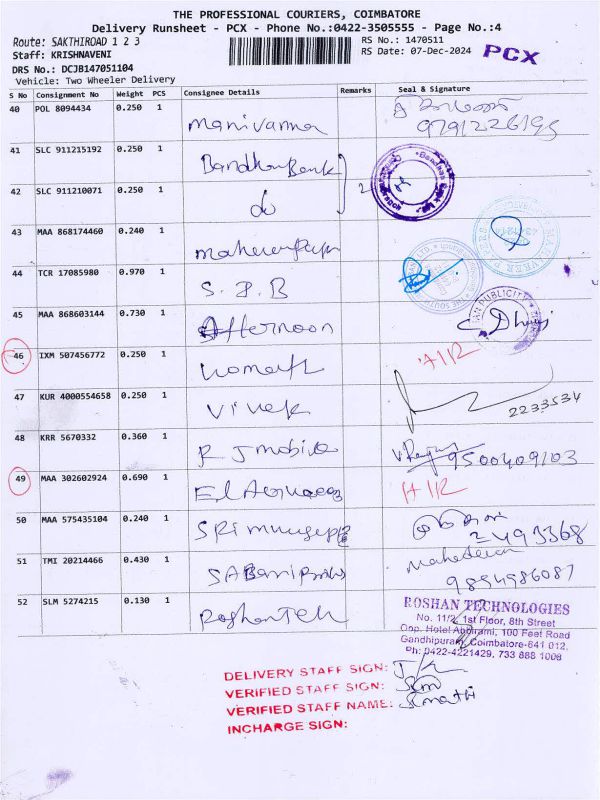 THE PROFESSIONAL COURIERS, COIMBATORE
Delivery Runsheet - PCX - Phone No.:0422-3505555 - Page No.:4
Route: SAKTHIROAD 1 2 3
RS No.: 1470511
Staff: KRISHNAVENI
RS Date: 07-Dec-2024
PCX
DRS No.: DCJB147051104
Vehicle: Two Wheeler Delivery
S No Consignment No Weight PCS Consignee Details Remarks Seal & Signature
40 POL 8094434 0.250 1 Manivanna 9791226195
41 SLC 911215192 0.250 1 Bandhan Bank
42 SLC 911210071 0.250 1 do 2
43 MAA 868174460 0.240 1
44 TCR 17085980 0.970 1 S.I.B
45 MAA 868603144 0.730 1 Afternoon
46 IXM 507456772 0.250 1 AIR
47 KUR 4000554658 0.250 1 Vivek 2233534
48 KRR 5670332 0.360 1 R J mobile 9500409103
49 MAA 302602924 0.690 1 AIR
50 MAA 575435104 0.240 1 SRI
51 TMI 20214466 0.430 1 Mahadevan
52 SLM 5274215 0.130 1 Roshan Teh
ROSHAN TECHNOLOGIES
No. 11/2, 1st Floor, 8th Street
Opp. Hotel Abirami, 100 Feet Road
Gandhipuram, Coimbatore-641 012.
Ph: 0422-4221429, 733 888 1008
DELIVERY STAFF SIGN:
VERIFIED STAFF SIGN:
VERIFIED STAFF NAME:
INCHARGE SIGN: